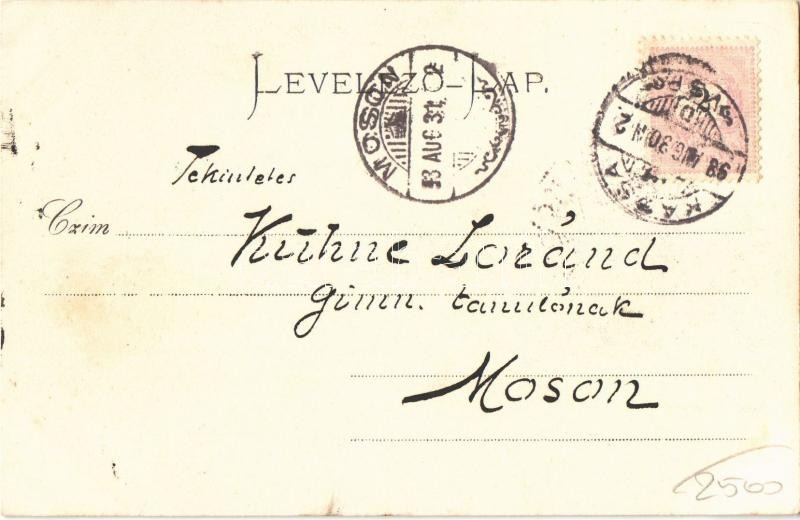 LEVELEZŐ-LAP.
MOSON
98 AUG 31
KASSA
98 AUG 30 N 2
Tekintetes
Czim
Kühne Loránd
Gimn. tanulónak
Moson
2500